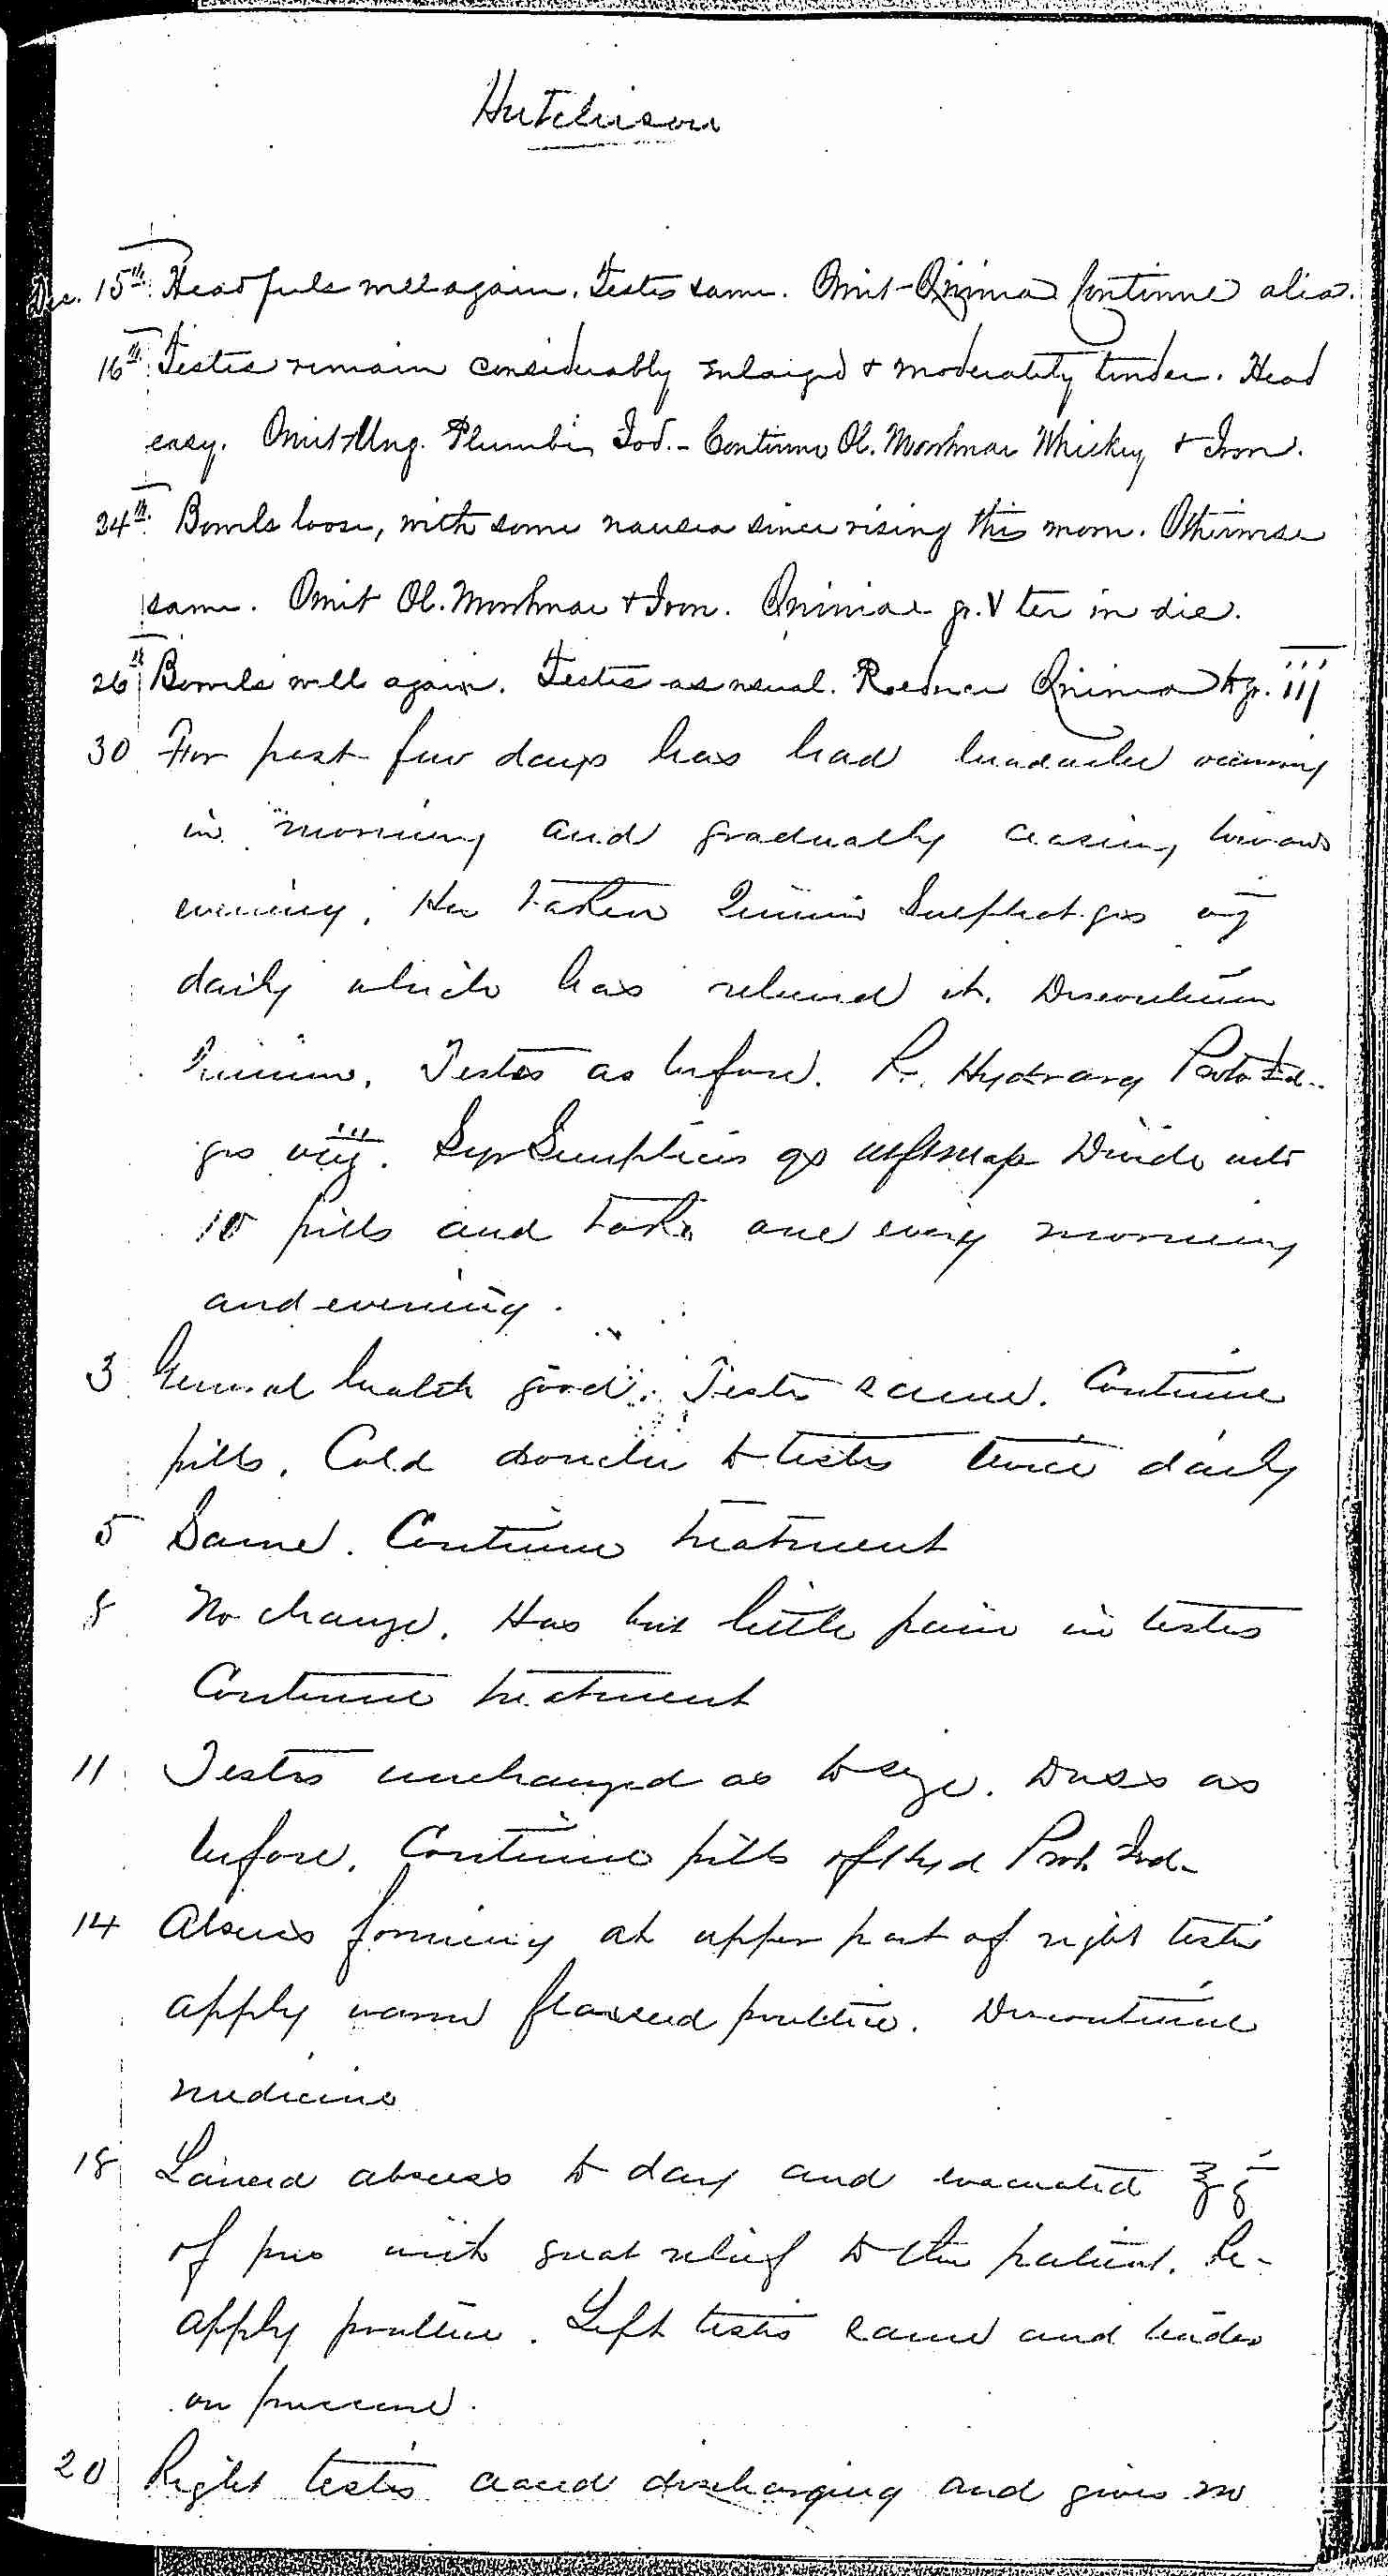 Hutchinson
Dec. 15th Head feels well again. Testes same. Omit Quinia Continue alia.
16th Testes remain considerably enlarged & moderately tender. Head
easy. Omit Ung. Plumbi Iod. - Continue Ol. Morrhuae Whiskey & Iron.
24th Bowels loose, with some nausea since rising this morn. Otherwise
same. Omit Ol. Morrhuae & Iron. Quiniae gr. V ter in die.
26th Bowels well again. Testes as usual. Reduce Quinia to gr. iij
30 For past few days has had headache
in morning and gradually ceasing towards
evening. Has taken Quinia Sulphat grs
daily which has relieved it. Discontinue
Quinia. Testes as before. R. Hydrarg Proto Iod.
grs viij. Syr Simplicis qs ut ft mass Divide into
10 pills and take one every morning
and evening.
3 General health good. Testes same. Continue
pills. Cold douche to testes twice daily
5 Same. Continue treatment
8 No change. Has but little pain in testes
Continue treatment
11 Testes unchanged as to size. as
before. Continue pills of Hyd Prot Iod-
14 Abscess forming at upper part of right testis
apply warm flaxseed poultice. Discontinue
medicine
18 Lanced abscess to day and evacuated ℥
of pus with great relief to the patient. Re-
apply poultice. Left testis same and tender
on pressure.
20 Right testis discharging and gives no